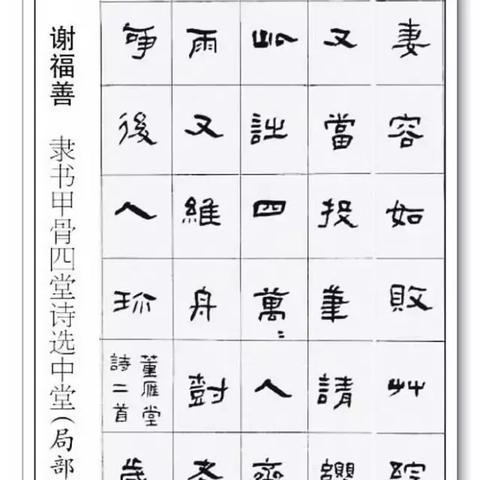 妻容如敗艸
又當投筆請纓
此註四萬=人齊
雨又維舟對
後人珎
董雁堂
詩二首
歲
谢福善 隶书甲骨四堂诗选中堂(局部